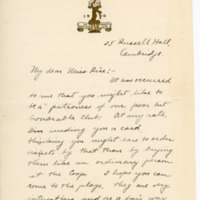 25 Russell Hall,
Cambridge.
My dear Miss Rice:-
It has occurred
to me that you might like to
be a patroness of our poor but
honorable club. At any rate,
I'm sending you a card
thinking you might care to order
tickets by that than by buying
them like an ordinary person
at the Coop. I hope you can
come to the plays, they are very
interesting and